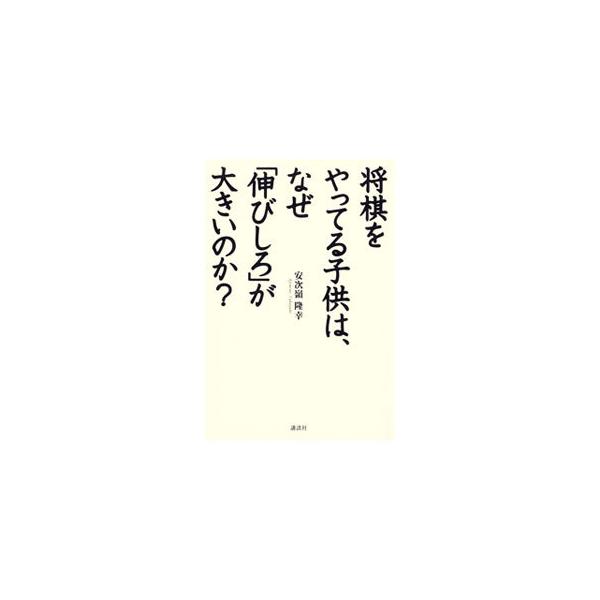 将棋を
やってる子供は、
なぜ
「伸びしろ」が
大きいのか?
安次嶺 隆幸
講談社